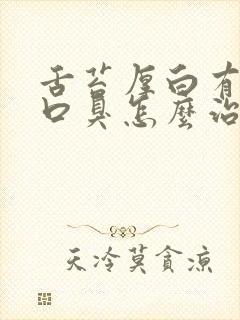 舌苔厚白有
口臭怎麼治
天冷莫貪涼